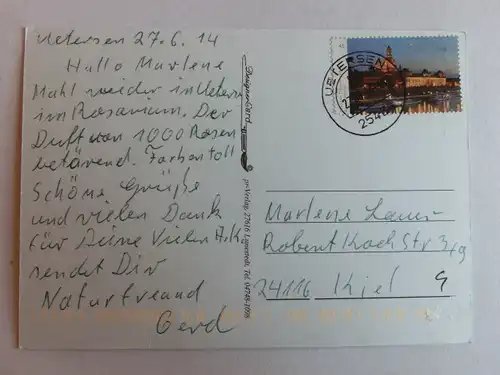 Uetersen 27.6.14
Hallo Marlene
Mahl wieder in Ueters
im Rosarium. Der
Duft von 1000 Rosen
betörend. Farben toll
Schöne Grüße
und vielen Dank
für Deine Vielen
sendet Dir
Naturfreund
Gerd
DesignerCard
pr-Verlag, 27616 Lunestedt, Tel. 04748-1098
UETERSEN
Marlene
Robert Koch Str
24116 Kiel